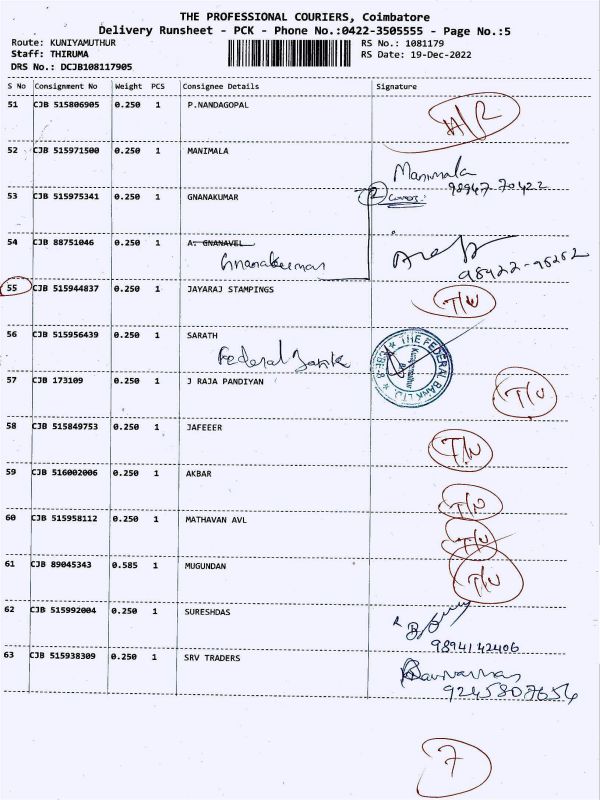 THE PROFESSIONAL COURIERS, Coimbatore
Delivery Runsheet - PCK - Phone No.:0422-3505555 - Page No.:5
Route: KUNIYAMUTHUR RS No.: 1081179
Staff: THIRUMA RS Date: 19-Dec-2022
DRS No.: DCJB108117905
S No Consignment No Weight PCS Consignee Details Signature
51 CJB 515806905 0.250 1 P.NANDAGOPAL
52 CJB 515971500 0.250 1 MANIMALA Manimala
98947 70422
53 CJB 515975341 0.250 1 GNANAKUMAR 2
54 CJB 88751046 0.250 1 A. GNANAVEL
Gnanakumar
98422-98262
55 CJB 515944837 0.250 1 JAYARAJ STAMPINGS T/N
56 CJB 515956439 0.250 1 SARATH
Federal Bank THE FEDERAL BANK LTD.
57 CJB 173109 0.250 1 J RAJA PANDIYAN T/N
58 CJB 515849753 0.250 1 JAFEEER T/N
59 CJB 516002006 0.250 1 AKBAR T/N
60 CJB 515958112 0.250 1 MATHAVAN AVL T/N
61 CJB 89045343 0.585 1 MUGUNDAN T/N
62 CJB 515992004 0.250 1 SURESHDAS
9894142406
63 CJB 515938309 0.250 1 SRV TRADERS
9245807654
7